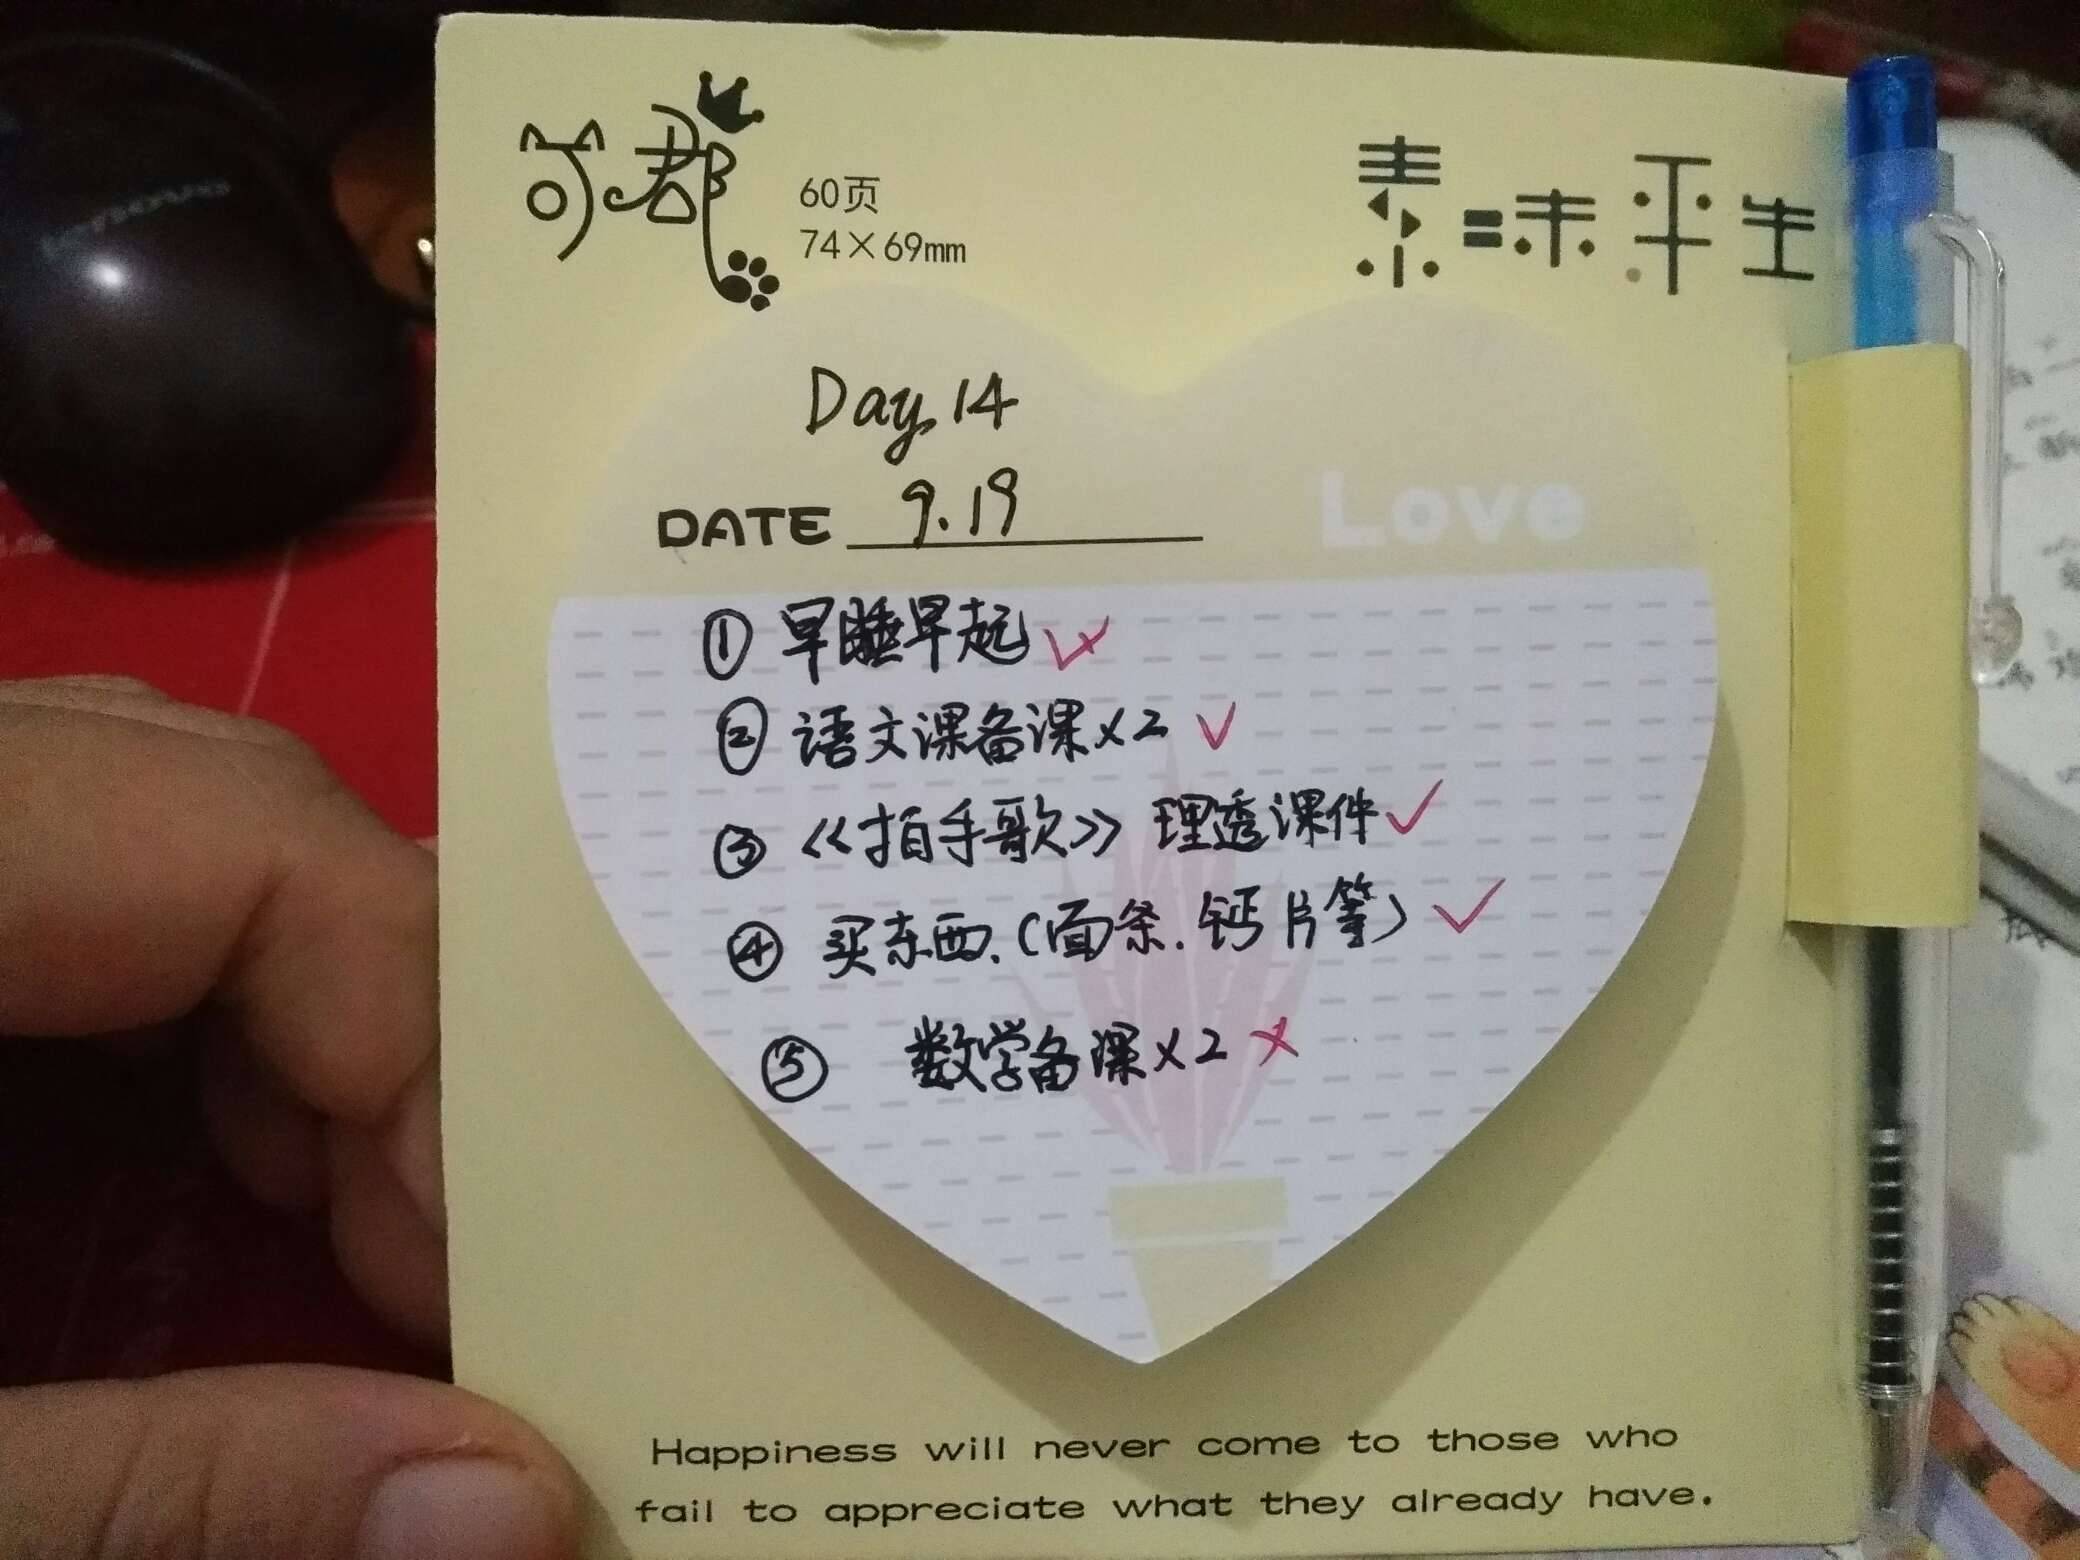 可都
60页
74×69mm
素=未平生
Day 14
DATE 9.19
Love
① 早睡早起
② 语文课备课×2
③ 《拍手歌》理透课件
④ 买东西.(面条.钙片等)
⑤ 数学备课×2
Happiness will never come to those who
fail to appreciate what they already have.